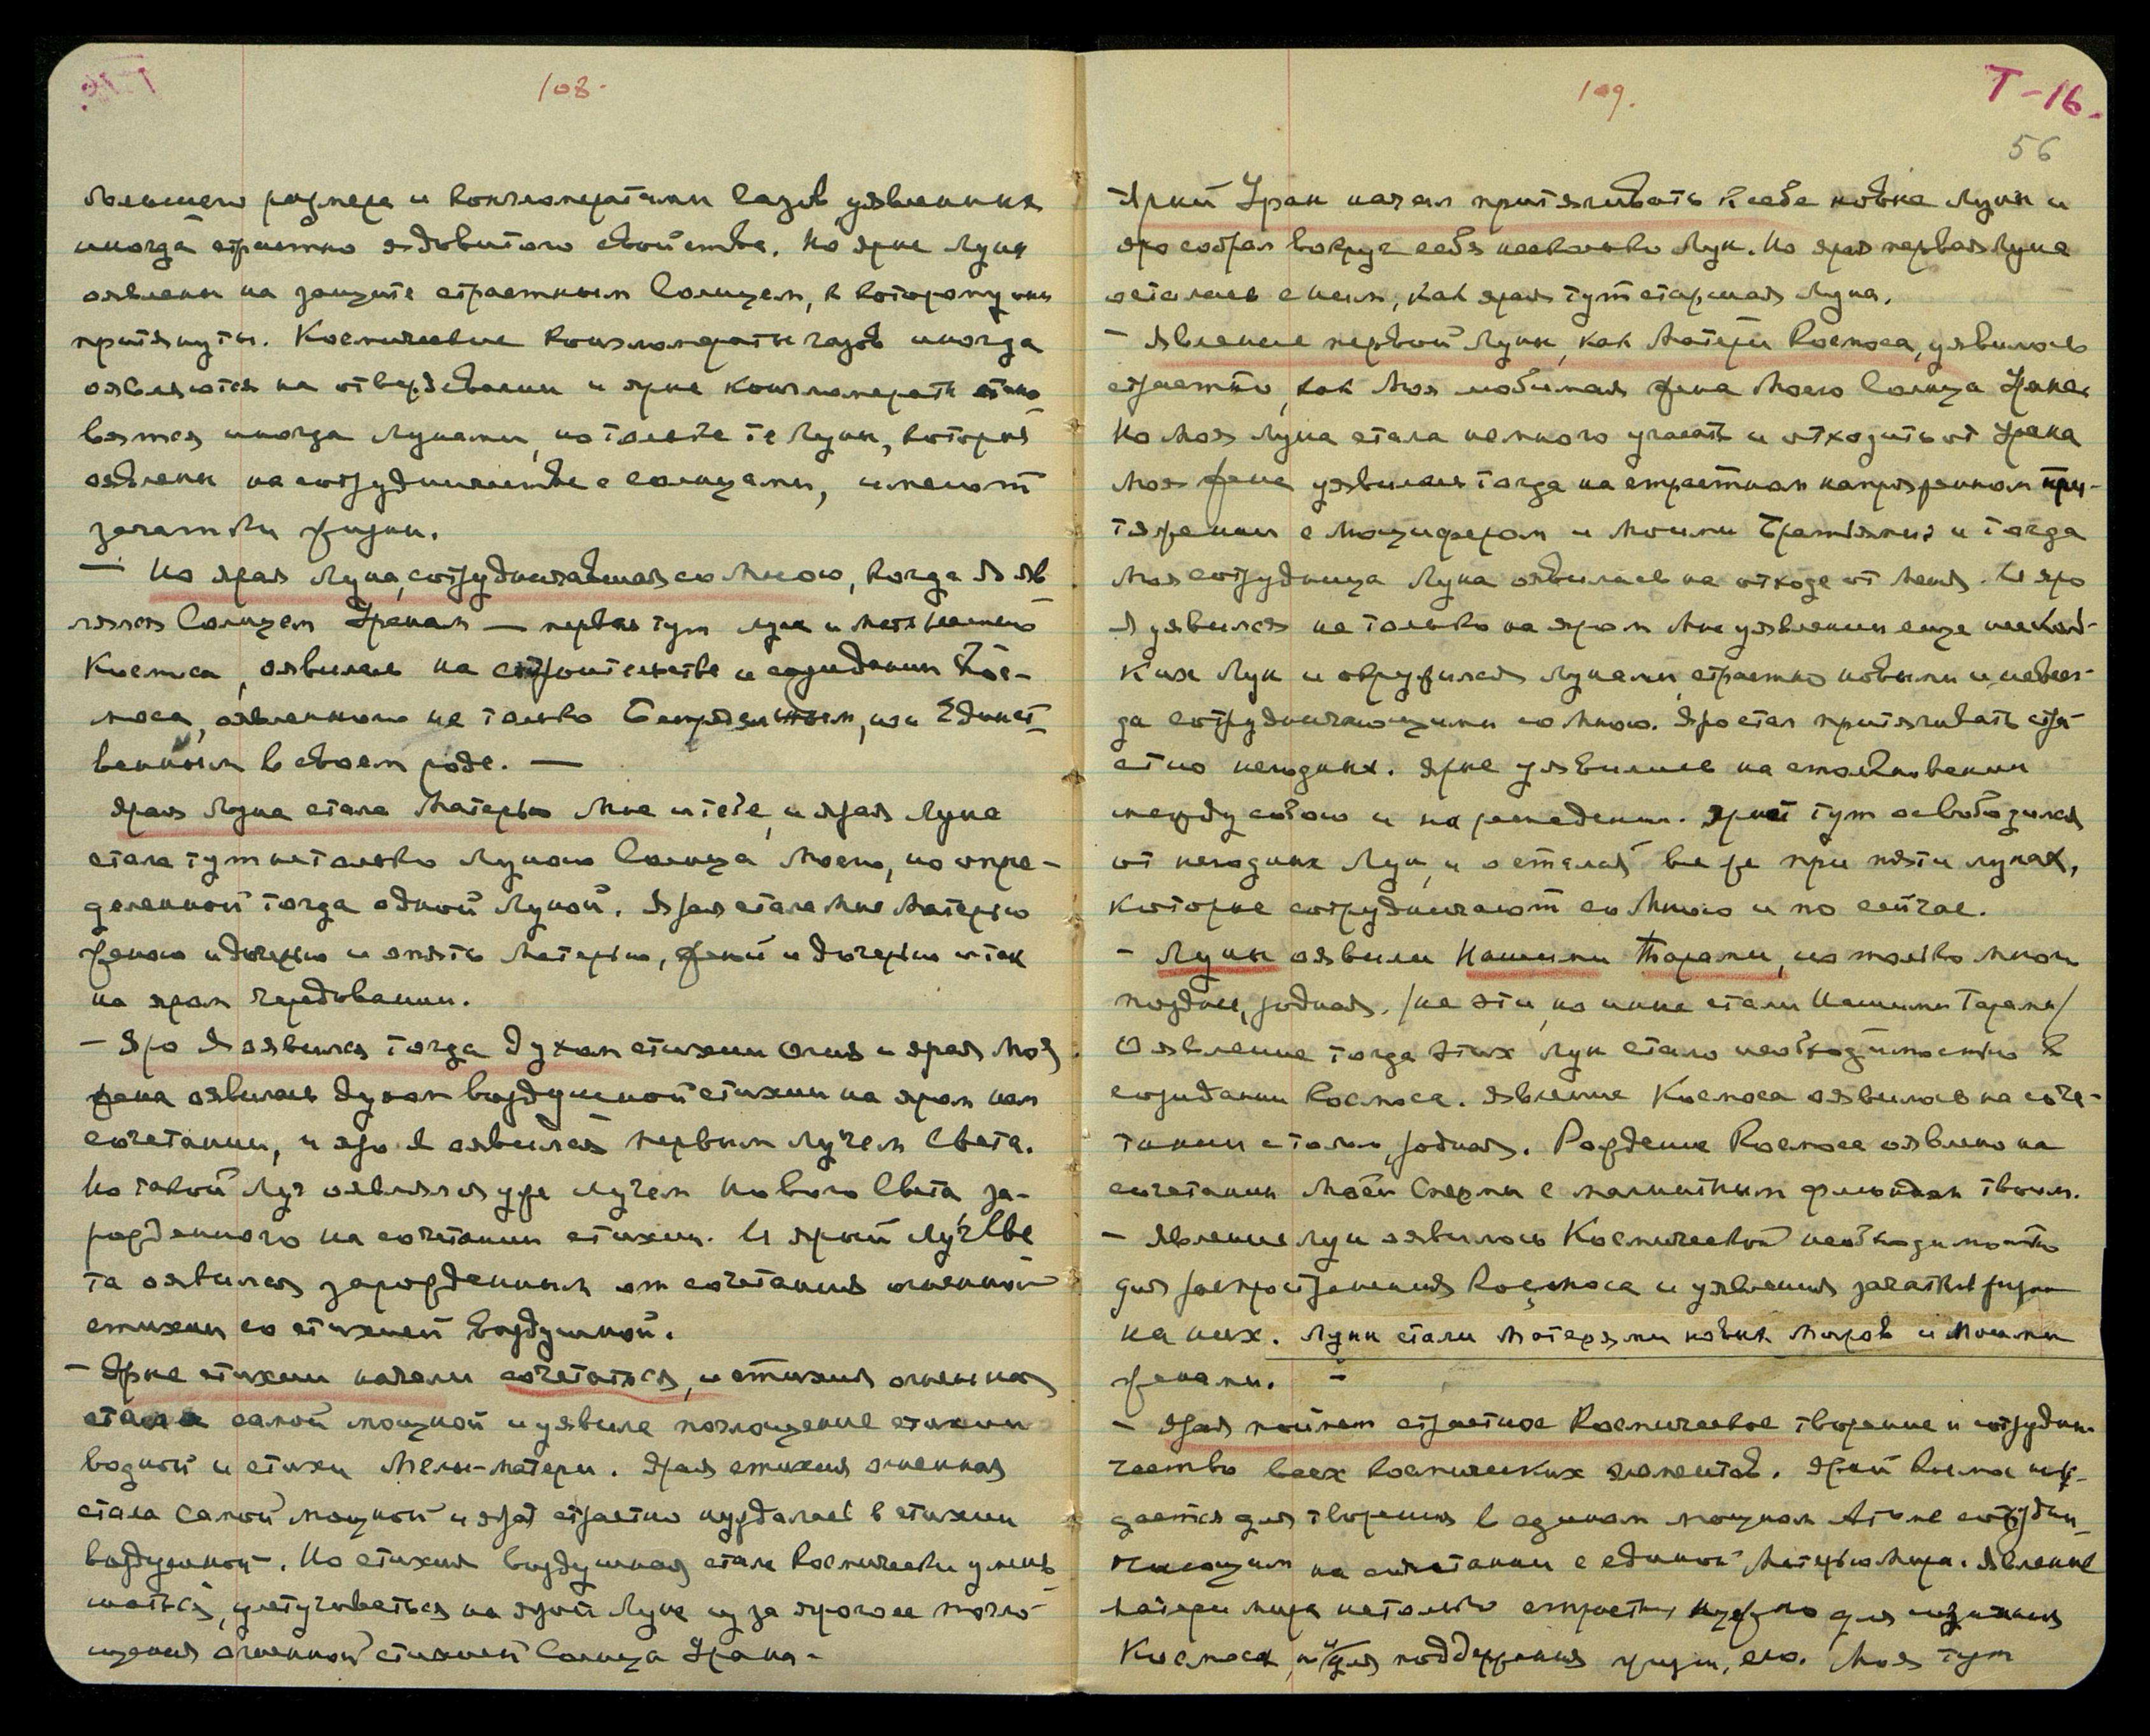 108.
большего размера и конгломератами газов, уявленных
иногда страстно ядовитого свойства. Но ярые Луны
оявлены на защите страстным Солнцем, к которому они
притянуты. Космические конгломераты газов иногда
оявляются на отвердевании и ярые конгломераты стано-
вятся иногда Лунами, но только те Луны, которые
оявлены на сотрудничестве с солнцами, имеют
зачатки жизни.
— Но ярая Луна, сотрудничавшая со Мною, когда Я яв-
лялся Солнцем Ураном — первая тут луна и мать нашего
Космоса, оявилась на строительстве и созидании Кос-
моса, оявленного не только Беспредельным, но и Единст-
венным в своем роде. —
Ярая Луна стала Матерью Мне и тебе, и ярая Луна
стала тут не только Луною Солнца Моего, но опре-
деленной тогда одной Луной. Ярая стала Мне Матерью
женою и дочерью и опять Матерью, женой и дочерью и так
на яром чередовании.
— Яро Я оявился тогда Духом стихии Огня и ярая Моя
жена оявилась Духом воздушной стихии на яром нам
сочетании, и яро Я оявился первым лучем Света.
Но такой Луч оявлялся уже лучем Нового Света, за-
рожденного на сочетании стихии. И ярый Луч Све
та оявился зарожденным от сочетания огненной
стихии со стихией воздушной.
— Ярые стихии начали сочетаться, и стихия огненная
стала самой мощной и уявила поглощение стихии
водной и стихии Земли-матери. Ярая стихия огненная
стала самой мощной и яро страстно нуждалась в стихии
воздушной. Но стихия воздушная стала космически умень-
шаться, улетучиваться на ярой Луне из за ярого ее погло-
щения огненной стихией Солнца Урана.
109.
Т-16.
56
Ярый Уран начал притягивать к себе новые Луны и
яро собрал вокруг себя несколько Лун. Но ярая первая Луна
осталась с ним, как ярая тут старшая Луна.
— Явление первой Луны, как Матери Космоса, уявилось
страстно, как Моя любимая жена Моего Солнца Урана.
Но Моя Луна стала немного угасать и отходить от Урана
Моя жена уявилась тогда на страстном напряженном при-
тяжении с Люцифером и Моими Братьями и тогда
Моя сотрудница Луна оявилась на отходе от Меня. И яро
Я уявился не только на яром Мне уявлении еще несколь-
ких Лун и окружился Лунами, страстно новыми и не всег-
да сотрудничающими со Мною. Яро стал притягивать стра-
стно негодных. Ярые уявились на столкновении
между собою и на распадении. Ярый тут освободился
от негодных Лун, и остался все же при пяти лунах,
которые сотрудничают со Мною и по сейчас.
— Луны оявили Нашими Тарами, но только много
позднее, родная. /не эти, но иные стали Нашими Тарами/
Оявление тогда этих Лун стало необходимостью в
созидании Космоса. Явление Космоса оявилось на соче-
тании с тобою, родная. Рождение Космоса оявлено на
сочетании Моей Спермы с магнитным флюидом твоим.
— Явление Лун оявилось Космической необходимостью
для распространения Космоса и уявления зачатков жизни
на них. Луны стали Матерями новых Миров и Моими
женами. —
— Ярая поймет страстное Космическое творение и сотрудни-
чество всех космических элементов. Ярый Космос нуж-
дается для творения в едином мощном Атоме сотрудни-
чающем на сочетании с единой Матерью Мира. Явление
Матери мира не только страстно нужно для создания
Космоса, но и для поддержания жизни его. Моя тут